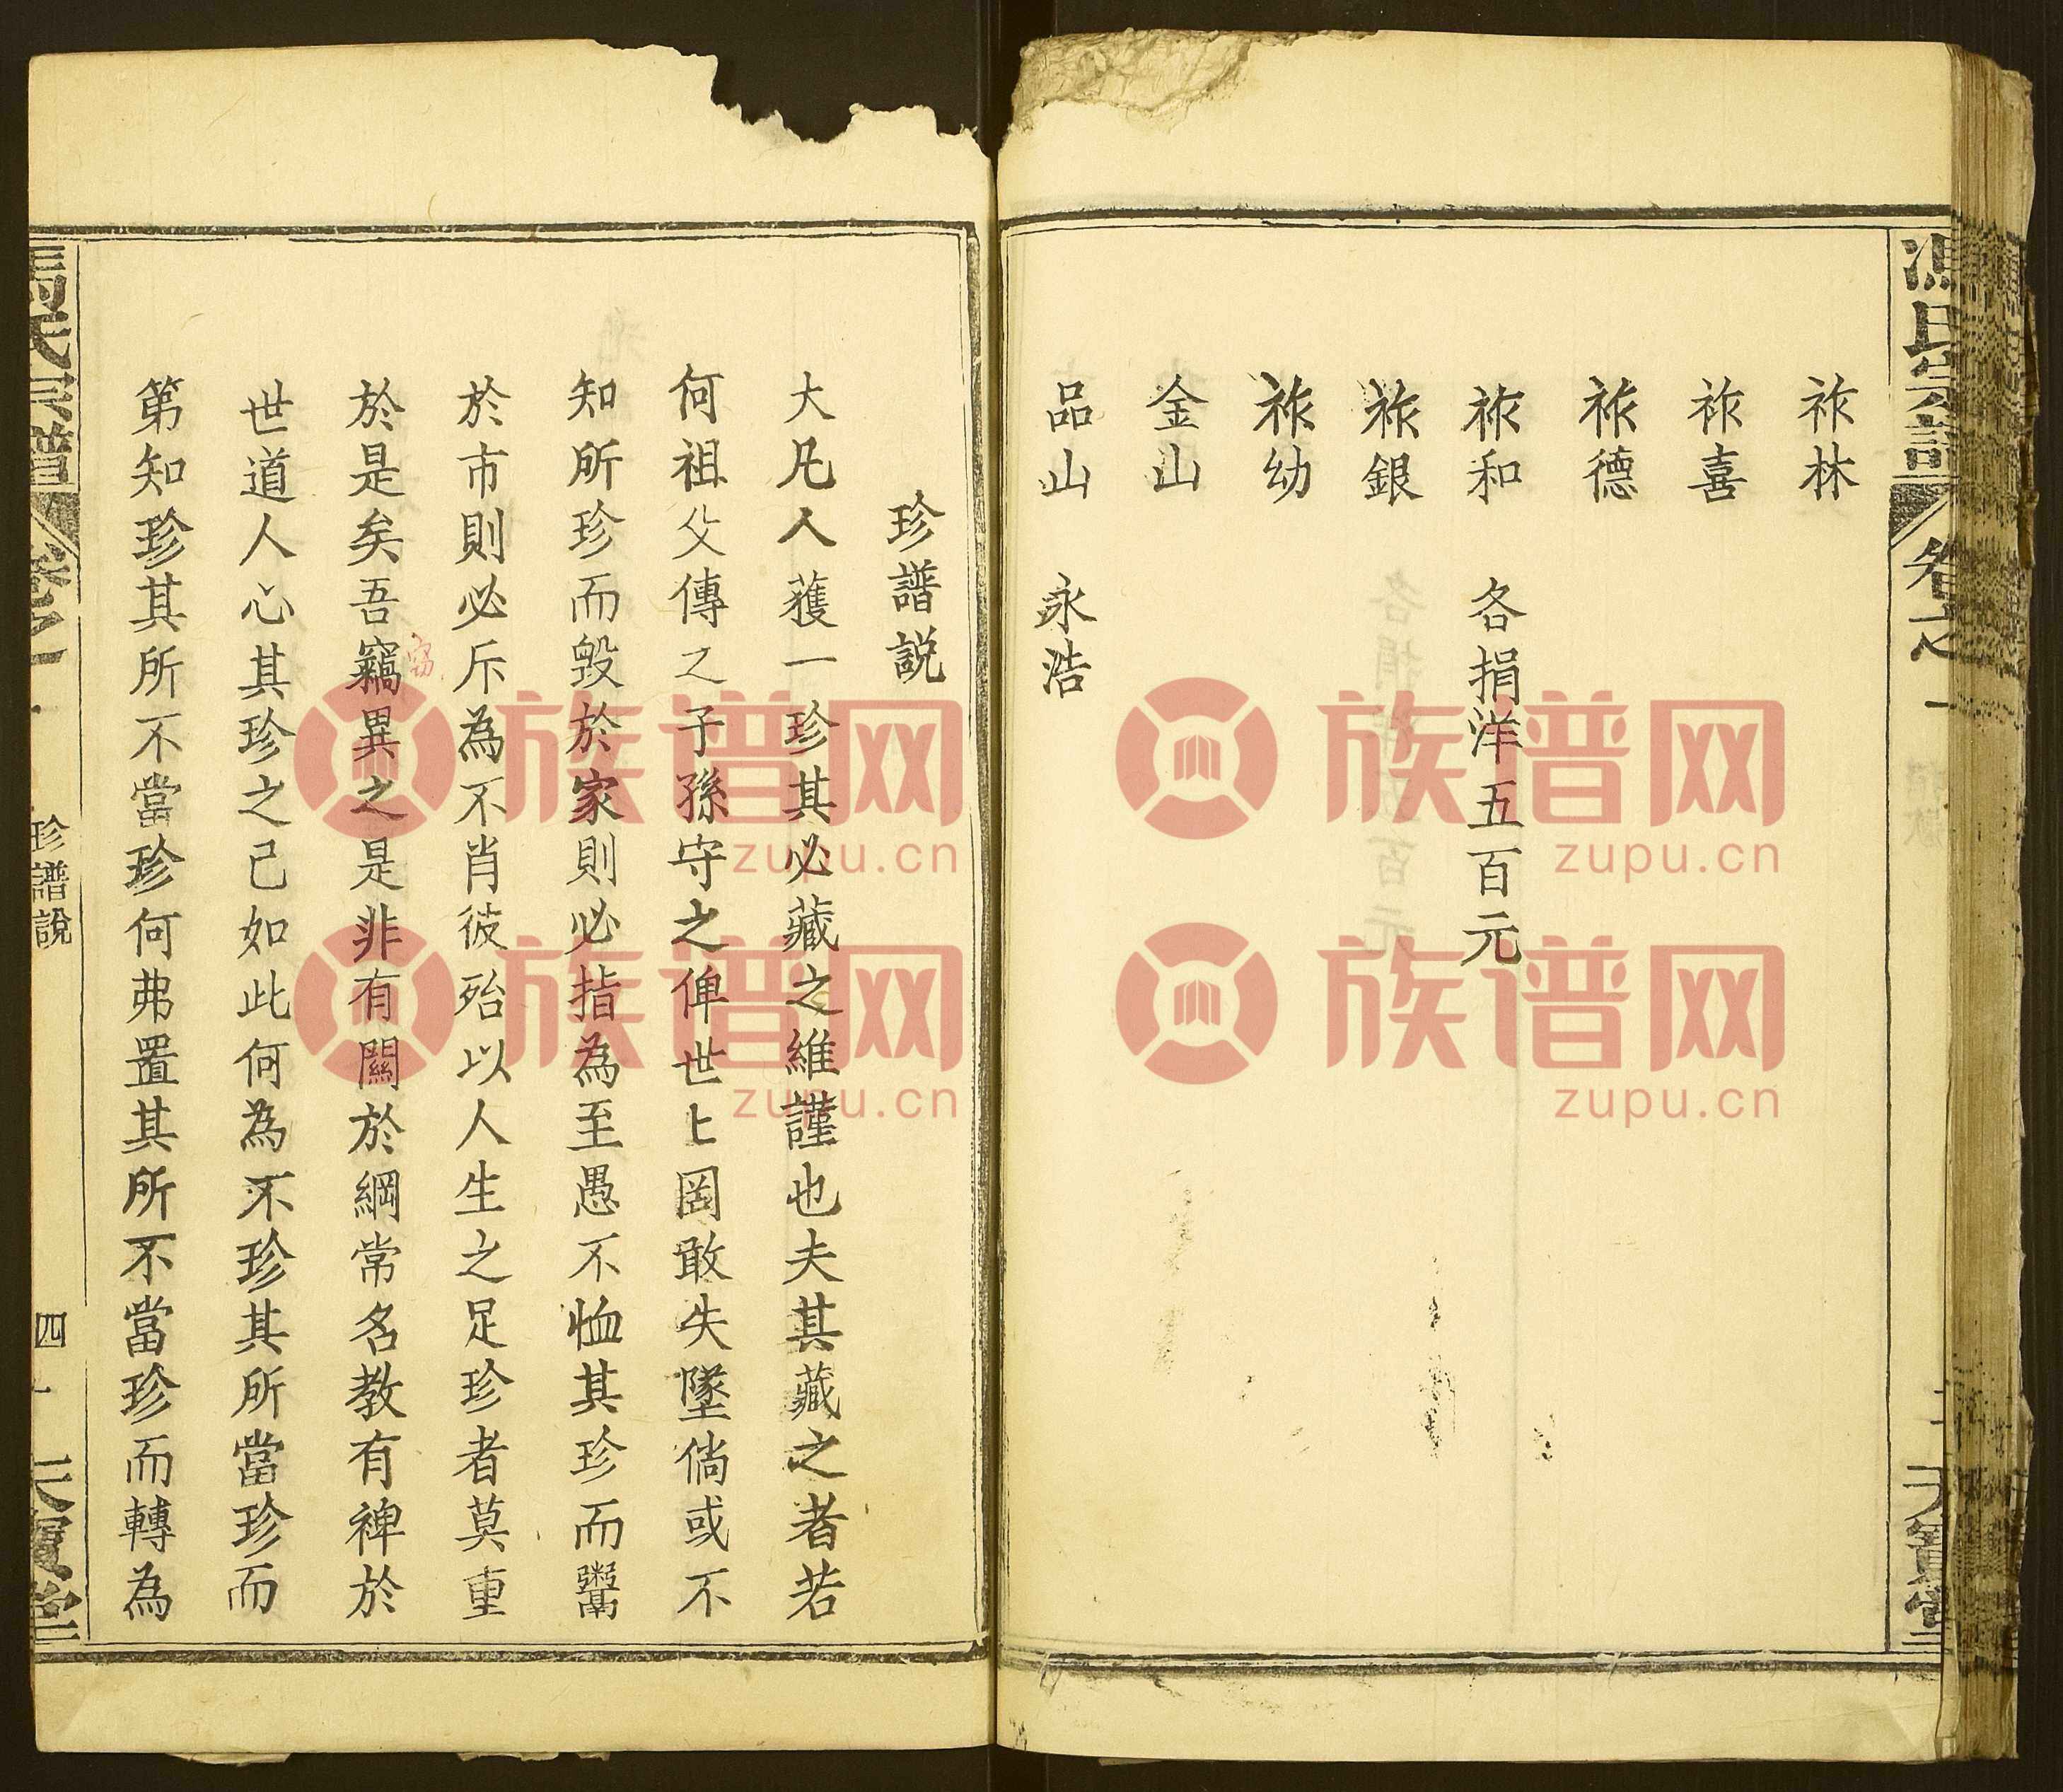 馮氏宗譜 卷之一
天寶堂
祚林
祚喜
祚德
祚和 各捐洋五百元
祚銀
祚幼
金山
品山 永浩
珍譜説
大凡人獲一珍其必藏之維謹也夫其藏之者若
何祖父傳之子孫守之俾世㠯罔敢失墜倘或不
知所珍而毀於家則必指為至愚不恤其珍而鬻
於市則必斥為不肖彼殆以人生之足珍者莫重
於是矣吾竊異之是非有關於綱常名教有裨於
竊
世道人心其珍之己如此何為不珍其所當珍而
第知珍其所不當珍何弗置其所不當珍而轉為
馮氏宗譜 卷之一 珍譜說 四 天寶堂
族谱网
zupu.cn
族谱网
zupu.cn
族谱网
zupu.cn
族谱网
zupu.cn